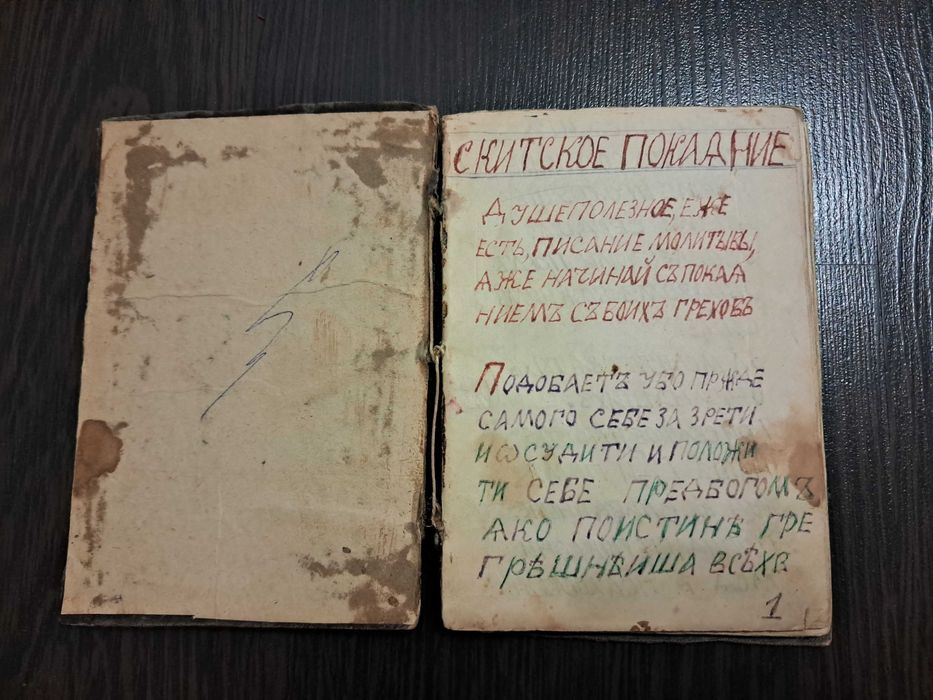 СКИТСКОЕ ПОКАѦНИЕ
ДУШЕПОЛЕЗНОЕ, ЕЖЕ
ЕСТЬ, ПИСАНИЕ МОЛИТЪВЫ,
АЖЕ НАЧИНАЙ СЪПОКАѦ
НИЕМЪ СЪВОИХЪ ГРЕХОВЪ
ПОДОБАЕТЪ УБО ПРѢЖДЕ
САМОГО СЕБЕ ЗА ЗРЕТИ
И ѠСУДИТИ И ПОЛОЖИ
ТИ СЕБЕ ПРЕДБОГОМЪ
ѦКО ПОИСТИНѢ ГРЕ
ГРѢШНѢИША ВСѢХЪ
1